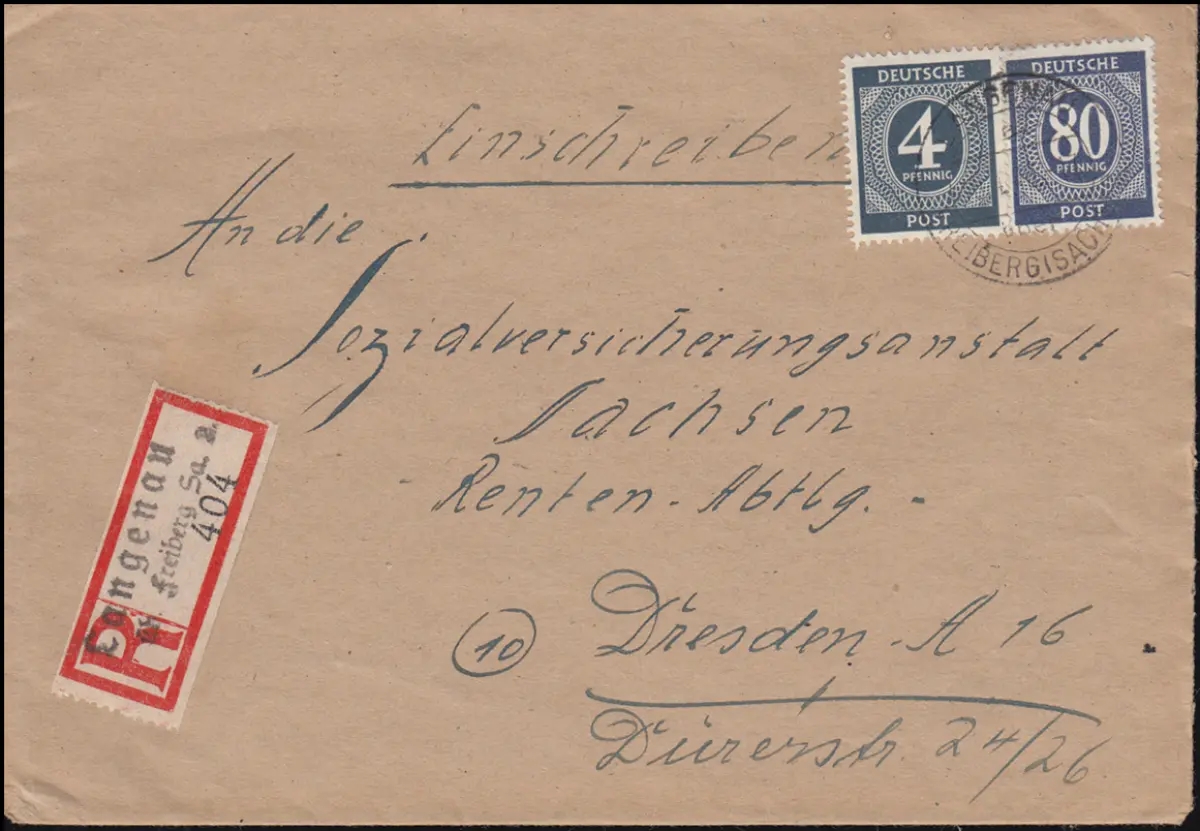 DEUTSCHE
4
PFENNIG
POST
DEUTSCHE
80
PFENNIG
POST
Einschreiben
An die
Sozialversicherungsanstalt
Sachsen
Renten-Abtlg.-
10 Dresden-A 16
Dürerstr 24/26
Langenau
Freiberg Sa.
404
R